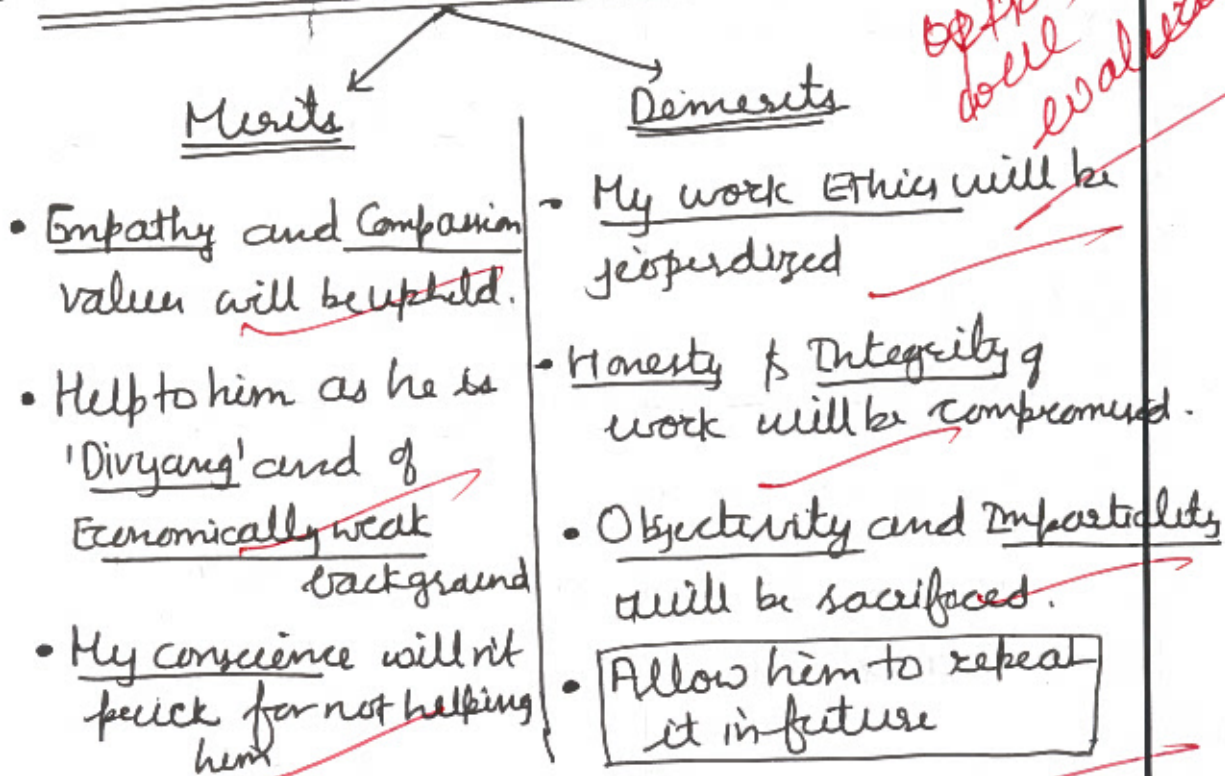 Merits
• Empathy and Compassion
values will be upheld.
• Help to him as he is
'Divyang' and of
Economically weak
background
• My conscience will n't
prick for not helping
him
Demerits
• My work Ethics will be
jeoperdized
• Honesty & Integrity of
work will be compromised.
• Objectivity and Impartiality
will be sacrificed.
• Allow him to repeat
it in future